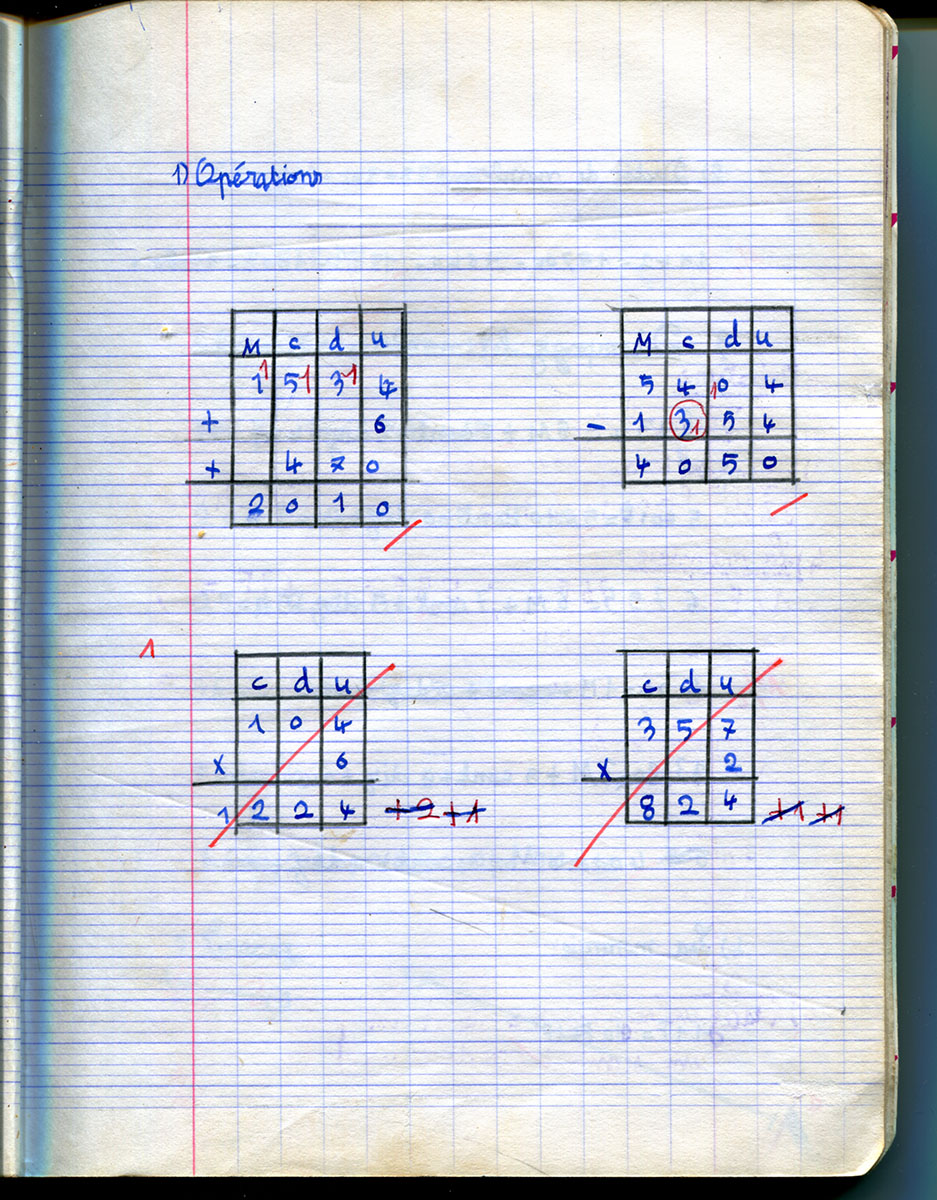 1) Opérations
M c d u
1¹ 5¹ 3¹ 4
+ 6
+ 4 7 0
2 0 1 0
M c d u
5 4 ¹0 4
- 1 3₁ 5 4
4 0 5 0
1
c d u
1 0 4
x 6
1 2 2 4 +2 +1
c d u
3 5 7
x 2
8 2 4 +1 +1